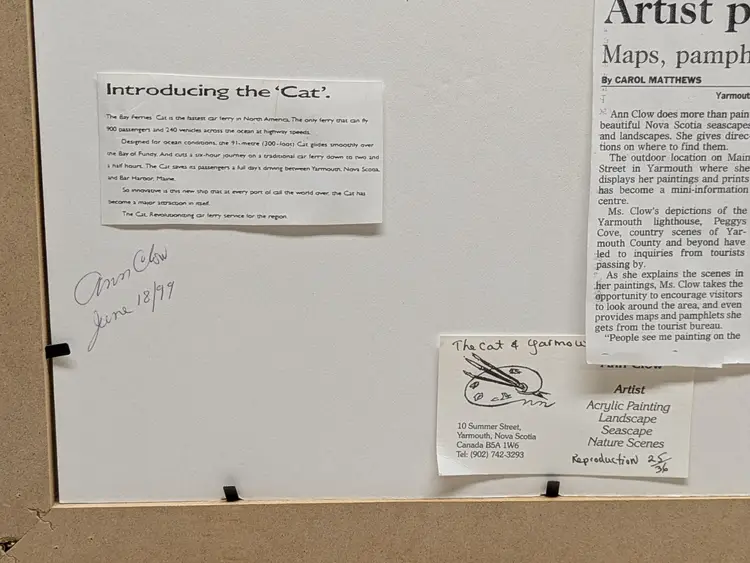 Introducing the ‘Cat’.
The Bay Ferries' Cat is the fastest car ferry in North America. The only ferry that can fly
900 passengers and 240 vehicles across the ocean at highway speeds.
Designed for ocean conditions, the 91-metre (300-foot) Cat glides smoothly over
the Bay of Fundy. And cuts a six-hour journey on a traditional car ferry down to two and
a half hours. The Cat saves its passengers a full day's driving between Yarmouth, Nova Scotia,
and Bar Harbor, Maine.
So innovative is this new ship that at every port of call the world over, the Cat has
become a major attraction in itself.
The Cat. Revolutionizing car ferry service for the region.
Ann Clow
June 18/99
Artist p
Maps, pamph
By CAROL MATTHEWS
Yarmout
Ann Clow does more than pain
beautiful Nova Scotia seascapes
and landscapes. She gives direc-
tions on where to find them.
The outdoor location on Main
Street in Yarmouth where she
displays her paintings and prints
has become a mini-information
centre.
Ms. Clow's depictions of the
Yarmouth lighthouse, Peggys
Cove, country scenes of Yar-
mouth County and beyond have
led to inquiries from tourists
passing by.
As she explains the scenes in
her paintings, Ms. Clow takes the
opportunity to encourage visitors
to look around the area, and even
provides maps and pamphlets she
gets from the tourist bureau.
"People see me painting on the
The Cat & Yarmou
Ann Clow
Artist
Acrylic Painting
Landscape
Seascape
Nature Scenes
10 Summer Street,
Yarmouth, Nova Scotia
Canada B5A 1W6
Tel: (902) 742-3293
Reproduction 25/36